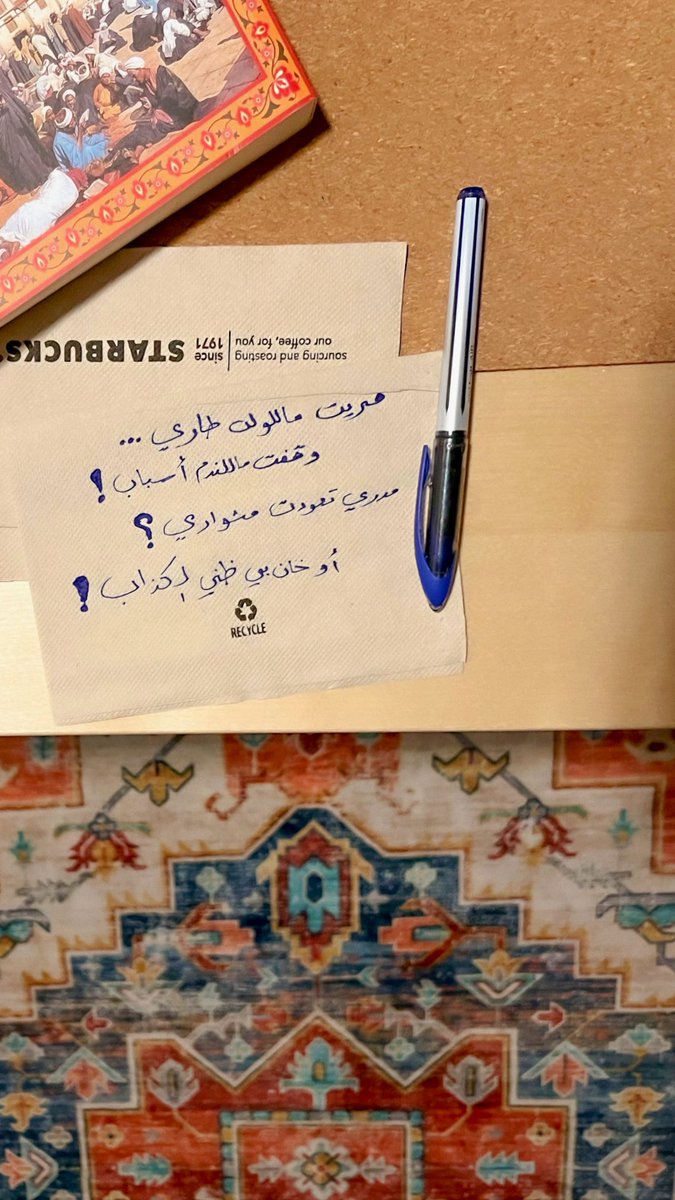 STARBUCKS®
since
1971
sourcing and roasting
our coffee, for you
مريت ماللوله طاري ...
وقفت ماللندم أسباب !
مدري تعودت مشواري ؟
أو خان بي ظني الكذاب !
RECYCLE